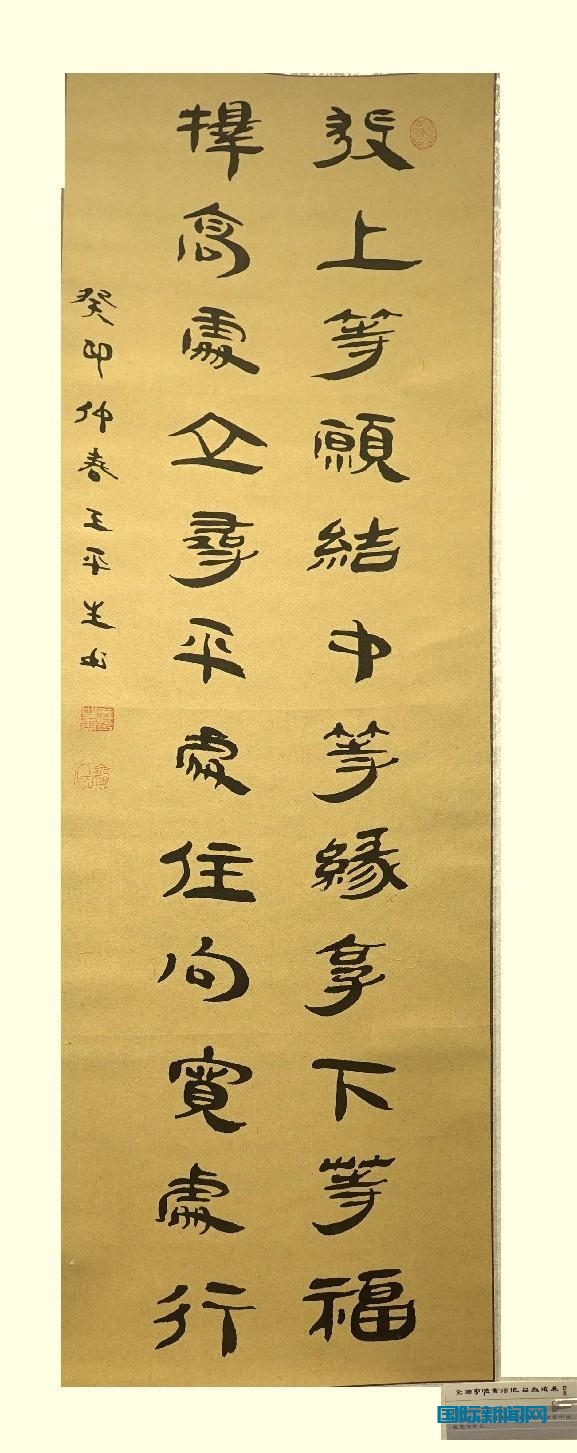 發上等願結中等緣享下等福
擇高處立尋平處住向寬處行
癸卯仲春王平生
国际新闻网